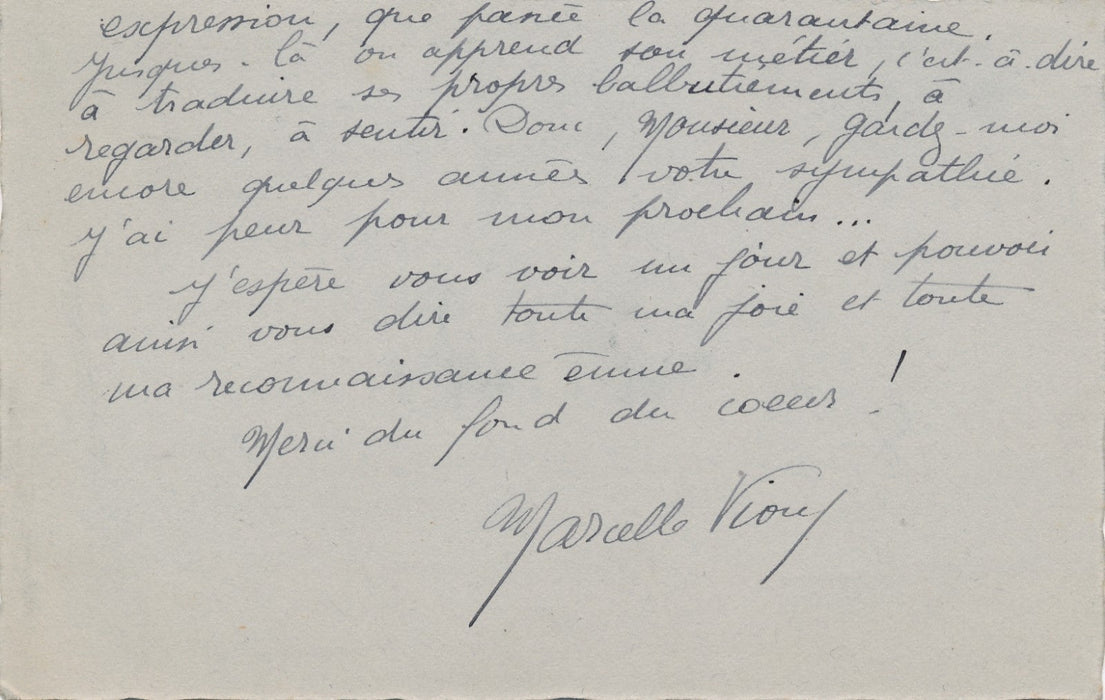 expression, que passée la quarantaine.
Jusques-là on apprend son métier, c'est-à-dire
à traduire ses propres balbutiements, à
regarder, à sentir. Donc, Monsieur, gardez-moi
encore quelques années votre sympathie.
J'ai peur pour mon prochain...
J'espère vous voir un jour et pouvoir
ainsi vous dire toute ma joie et toute
ma reconnaissance émue.
Merci du fond du coeur !
Marcelle Vioux